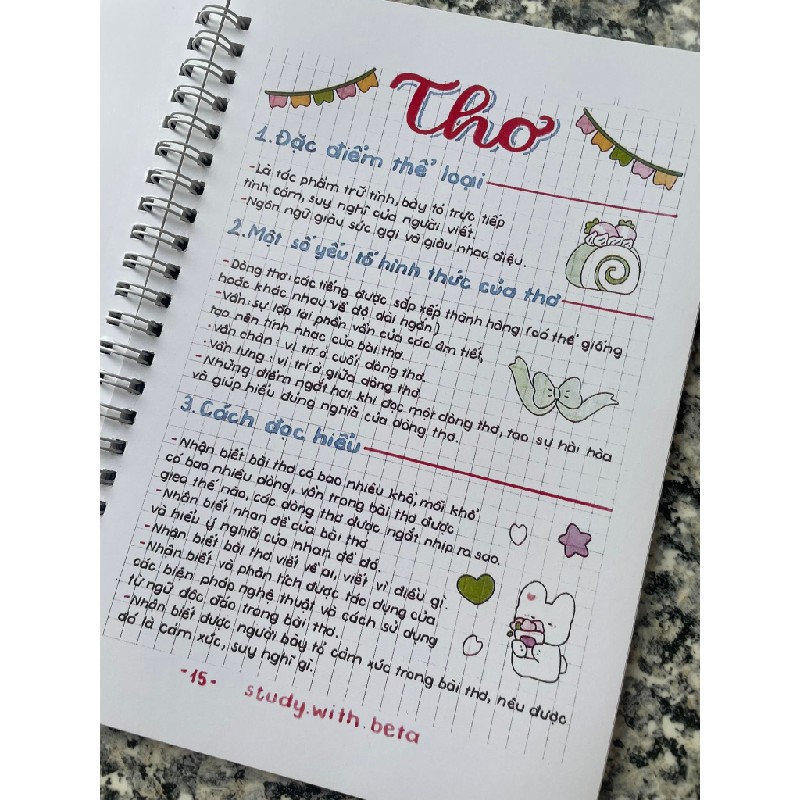 Thơ
1. Đặc điểm thể loại
- Là tác phẩm trữ tình, bày tỏ trực tiếp
tình cảm, suy nghĩ của người viết.
- Ngôn ngữ giàu sức gợi và giàu nhạc điệu.
2. Một số yếu tố hình thức của thơ
- Dòng thơ: các tiếng được sắp xếp thành hàng (có thể giống
hoặc khác nhau về độ dài ngắn)
- Vần: sự lặp lại phần vần của các âm tiết,
tạo nên tính nhạc của bài thơ.
· vần chân: vị trí ở cuối dòng thơ.
· vần lưng: vị trí ở giữa dòng thơ
- Những điểm ngắt hơi khi đọc một dòng thơ, tạo sự hài hòa
và giúp hiểu đúng nghĩa của dòng thơ.
3. Cách đọc hiểu
- Nhận biết bài thơ có bao nhiêu khổ, mỗi khổ
có bao nhiêu dòng, vần trong bài thơ được
gieo thế nào, các dòng thơ được ngắt nhịp ra sao.
- Nhận biết nhan đề của bài thơ
và hiểu ý nghĩa của nhan đề đó.
- Nhận biết bài thơ viết về ai, viết vì điều gì.
- Nhận biết và phân tích được tác dụng của
các biện pháp nghệ thuật và cách sử dụng
từ ngữ độc đáo trong bài thơ.
- Nhận biết được người bày tỏ cảm xúc trong bài thơ, nêu được
đó là cảm xúc, suy nghĩ gì.
-15-
study.with.beta